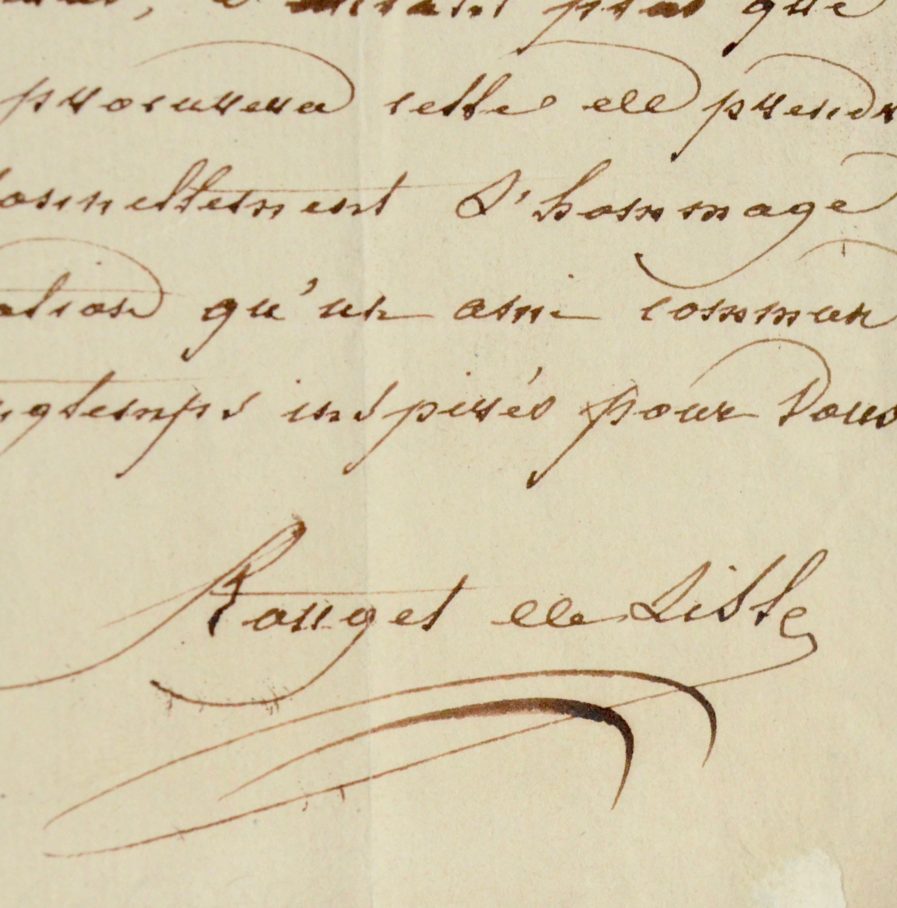 plus que
procurera cette de prendr
sonnellement l'hommage
ation qu'un ami commun
ngtemps inspirés pour vous
Rouget de Lisle